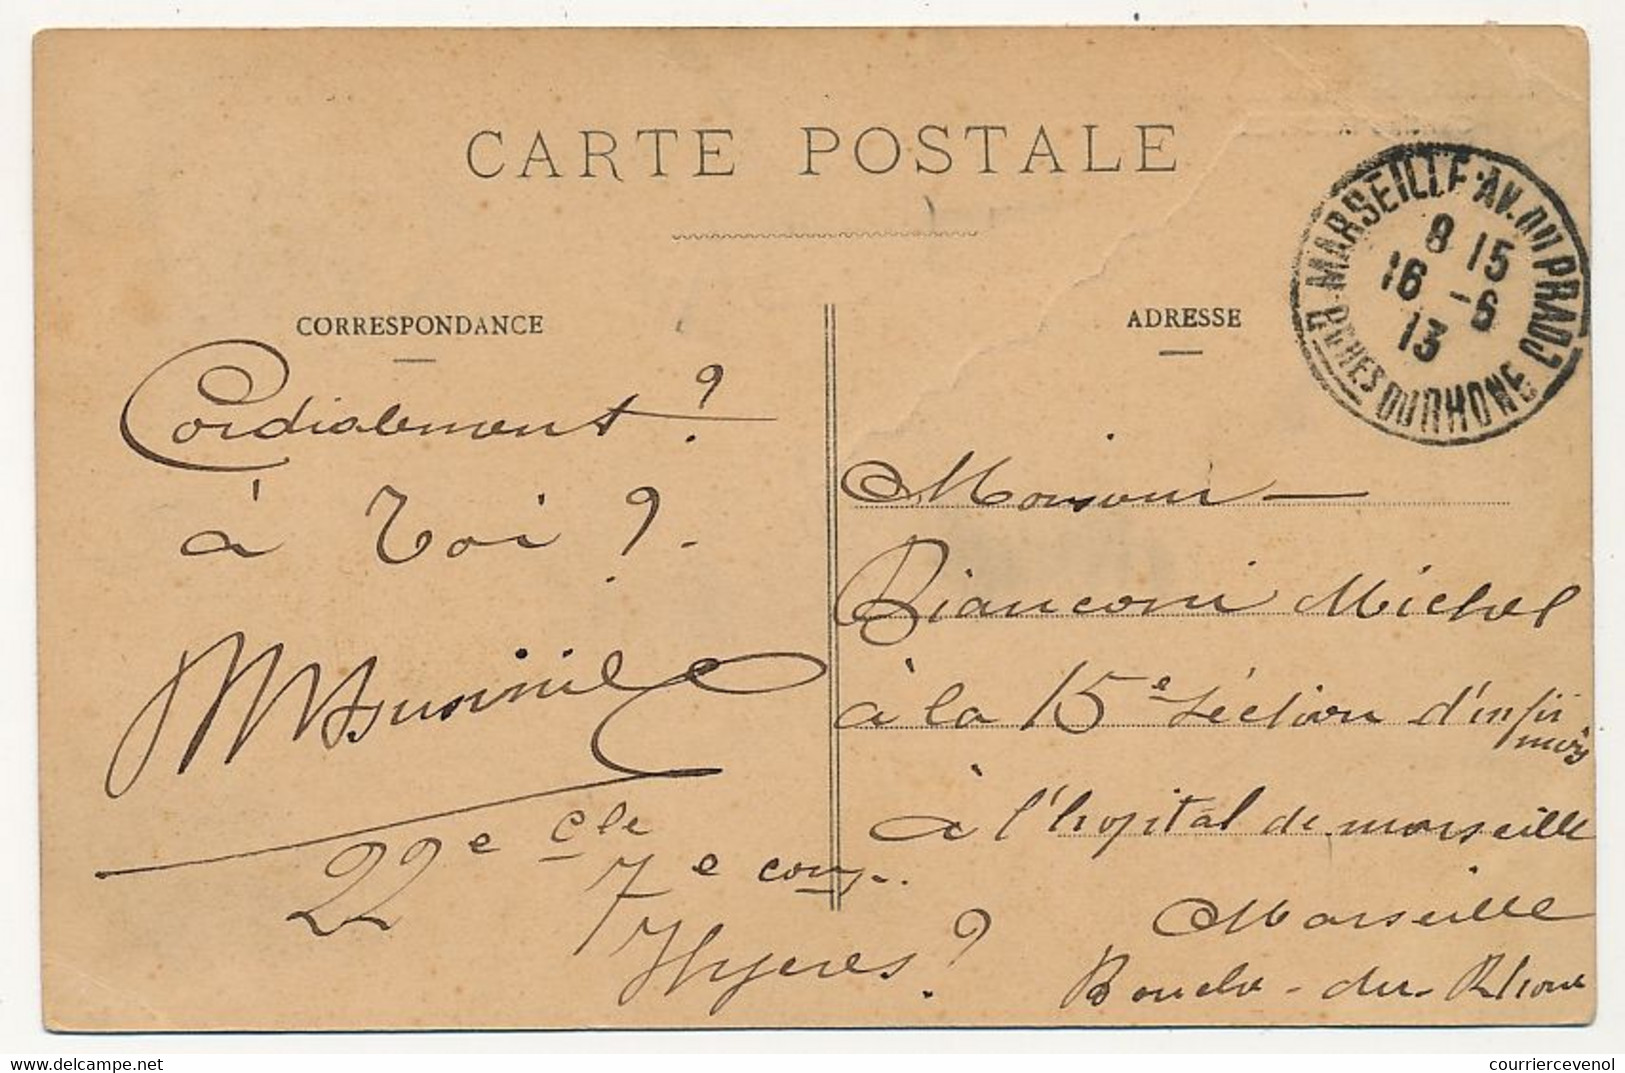 CARTE POSTALE
CORRESPONDANCE
ADRESSE
MARSEILLE-AV. DU PRADO
8 15
16 -6
13
BCHES DU RHONE
Cordialement ?
à Toi ?
22e Cle
7e comp.
Hyeres ?
Monsieur
Bianconi Michel
à la 15e Section d'infir
miers
à l'hopital de marseille
Marseille
Bouche-du-Rhone
www.delcampe.net
courriercevenol